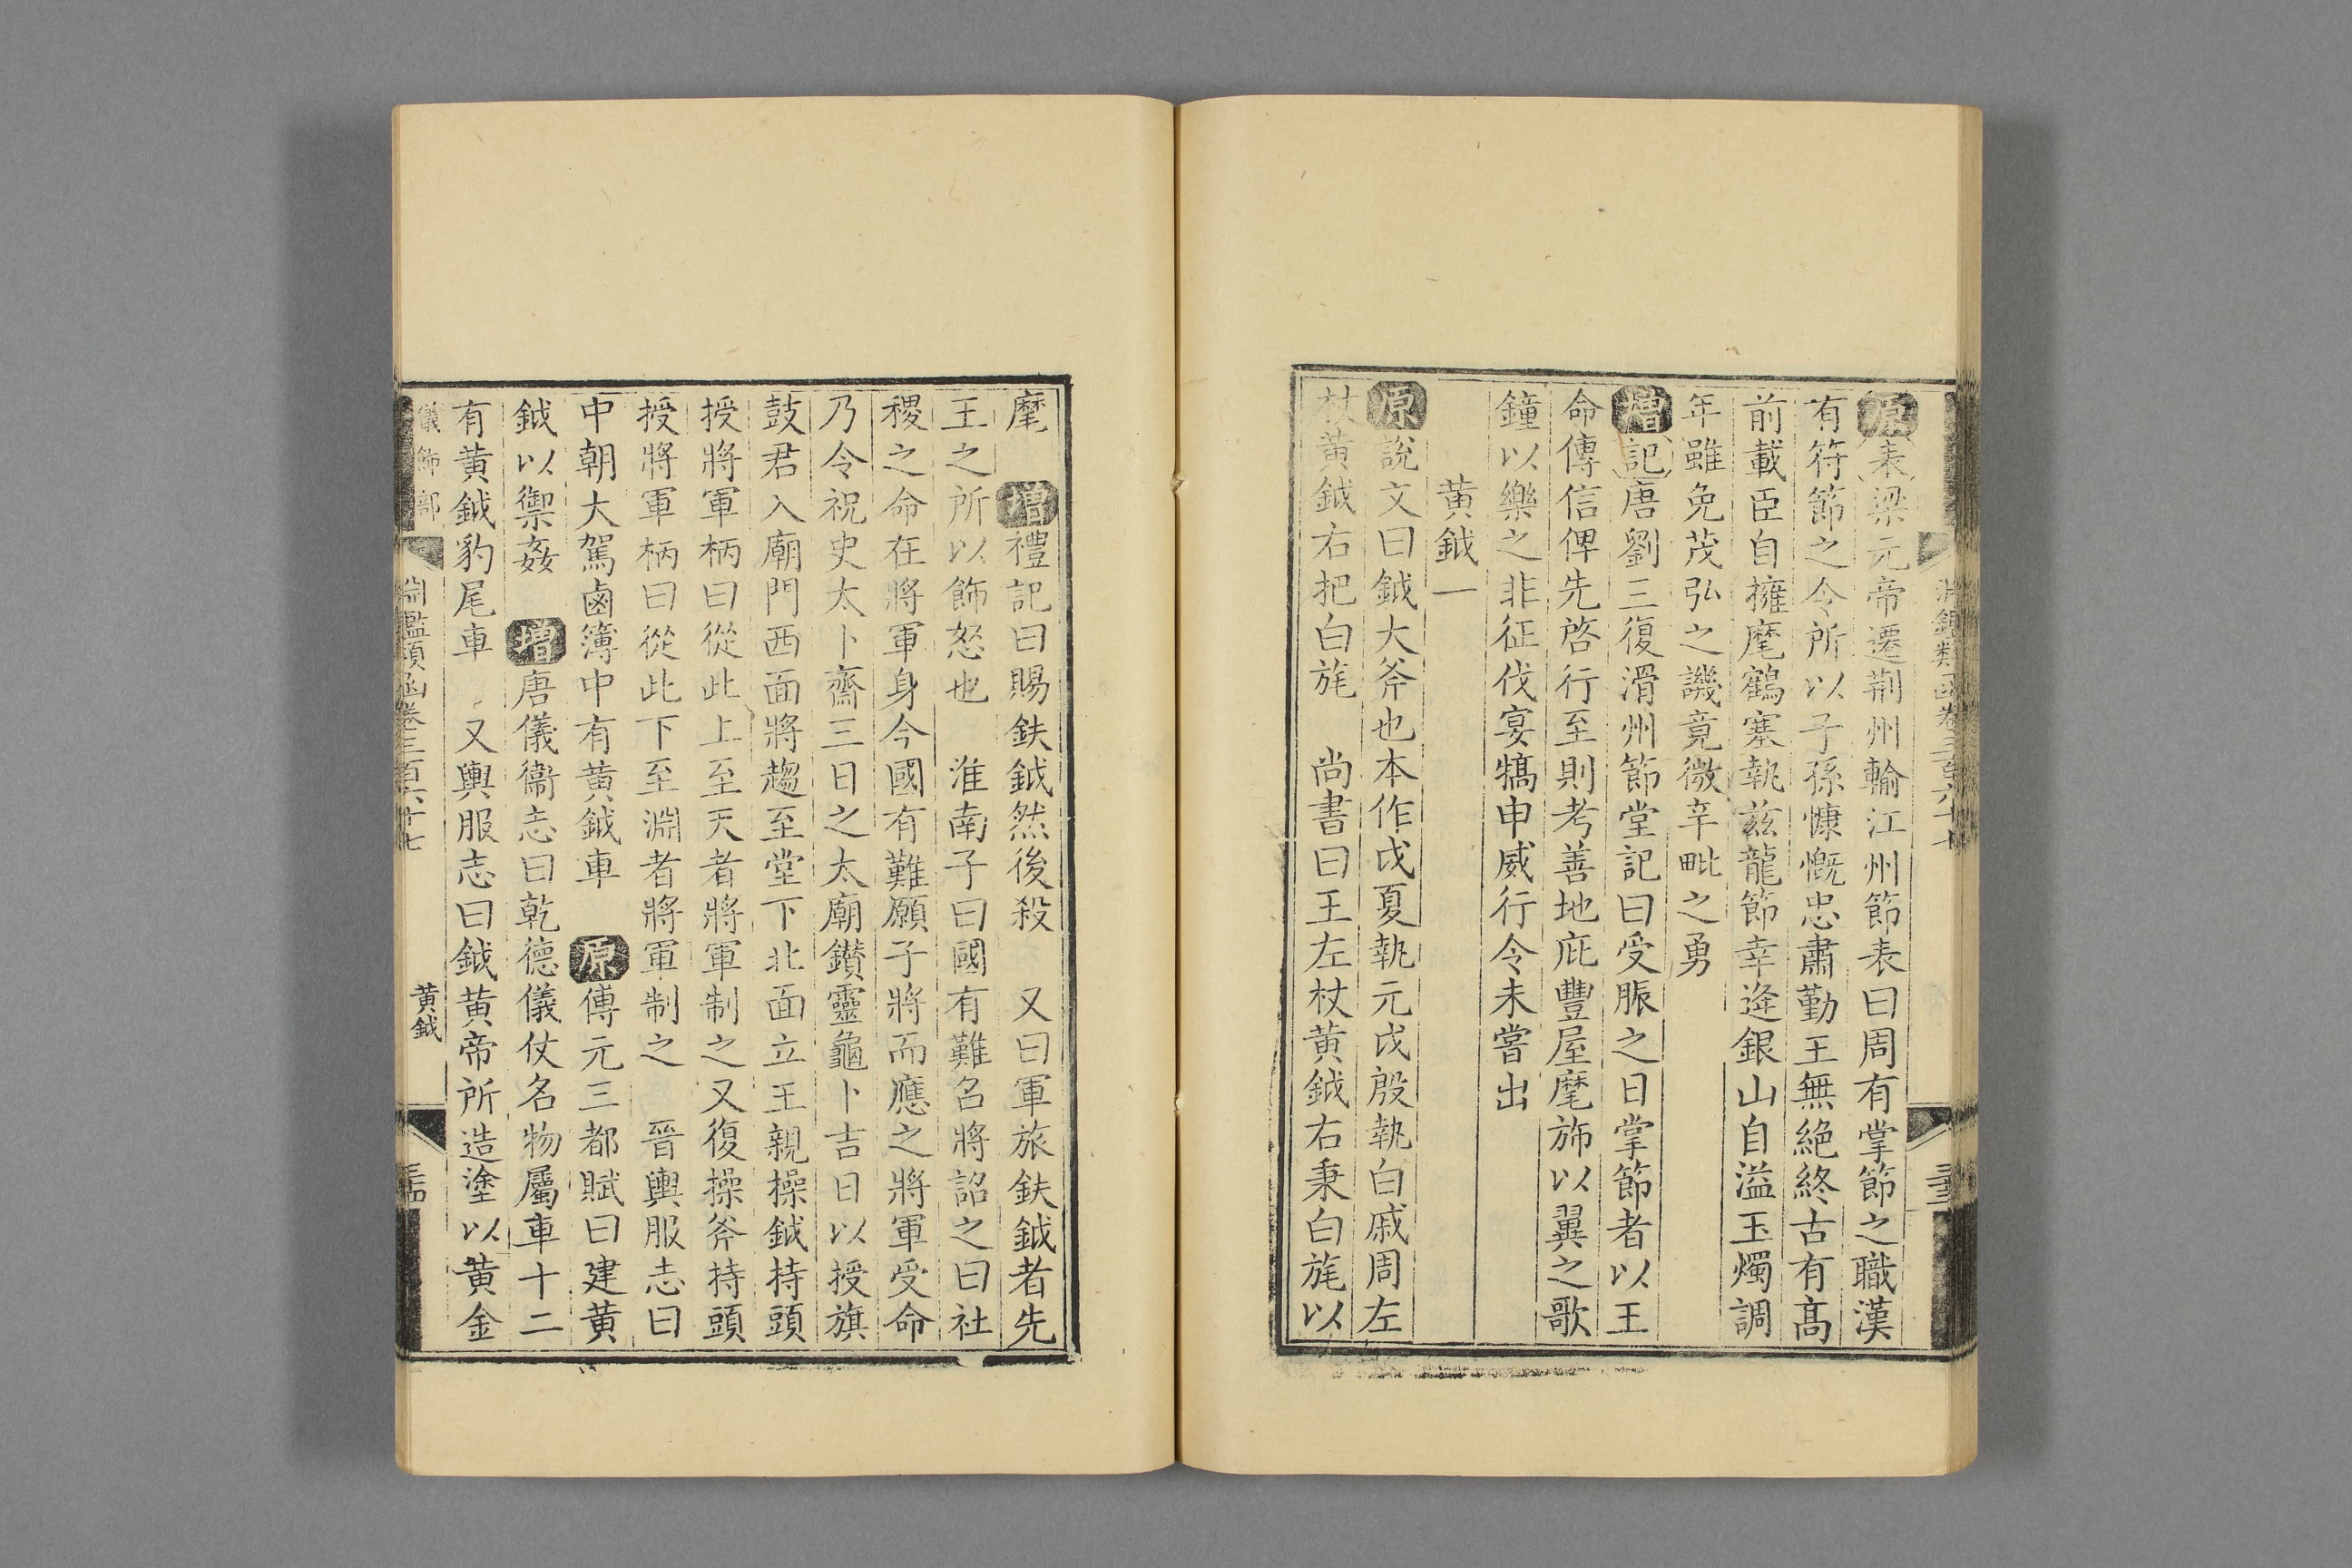 淵鑑類函卷三百六十七
三十三
原表梁元帝遷荆州輸江州節表曰周有掌節之職漢
有符節之令所以子孫慷慨忠肅勤王無絕終古有髙
前載臣自擁麾鶴塞執兹龍節幸逢銀山自溢玉燭調
年雖免茂弘之譏竟微辛毗之勇
增記唐劉三復滑州節堂記曰受脤之日掌節者以王
命傳信俾先啓行至則考善地庇豐屋麾斾以翼之歌
鐘以樂之非征伐宴犒申威行令未嘗出
黄鉞一
原說文曰鉞大斧也本作戉夏執元戉殷執白戚周左
杖黄鉞右把白旄　尚書曰王左杖黄鉞右秉白旄以
麾　增禮記曰賜鈇鉞然後殺　又曰軍旅鈇鉞者先
王之所以飾怒也　淮南子曰國有難召將詔之曰社
稷之命在將軍身今國有難願子將而應之將軍受命
乃令祝史太卜齋三日之太廟鑚靈龜卜吉日以授旗
鼓君入廟門西面將趨至堂下北面立王親操鉞持頭
授將軍柄曰從此上至天者將軍制之又復操斧持頭
授將軍柄曰從此下至淵者將軍制之　晉輿服志曰
中朝大駕鹵簿中有黄鉞車　原傅元三都賦曰建黄
鉞以禦姦　增唐儀衞志曰乾德儀仗名物屬車十二
有黄鉞豹尾車　又輿服志曰鉞黄帝所造塗以黄金
儀飾部
淵鑑類函卷三百六十七
黄鉞
三十四